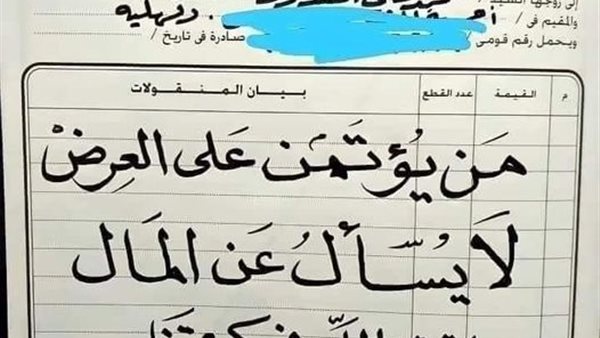 إلى زوجها السيد /
والمقيم فى / دقهلية
ويحمل رقم قومى / صادرة فى تاريخ /
م القيمة عدد القطع بيان المنقولات
مَن يُؤتَمَن عَلى العِرضْ
لَا يُسْأَلُ عَن المَال